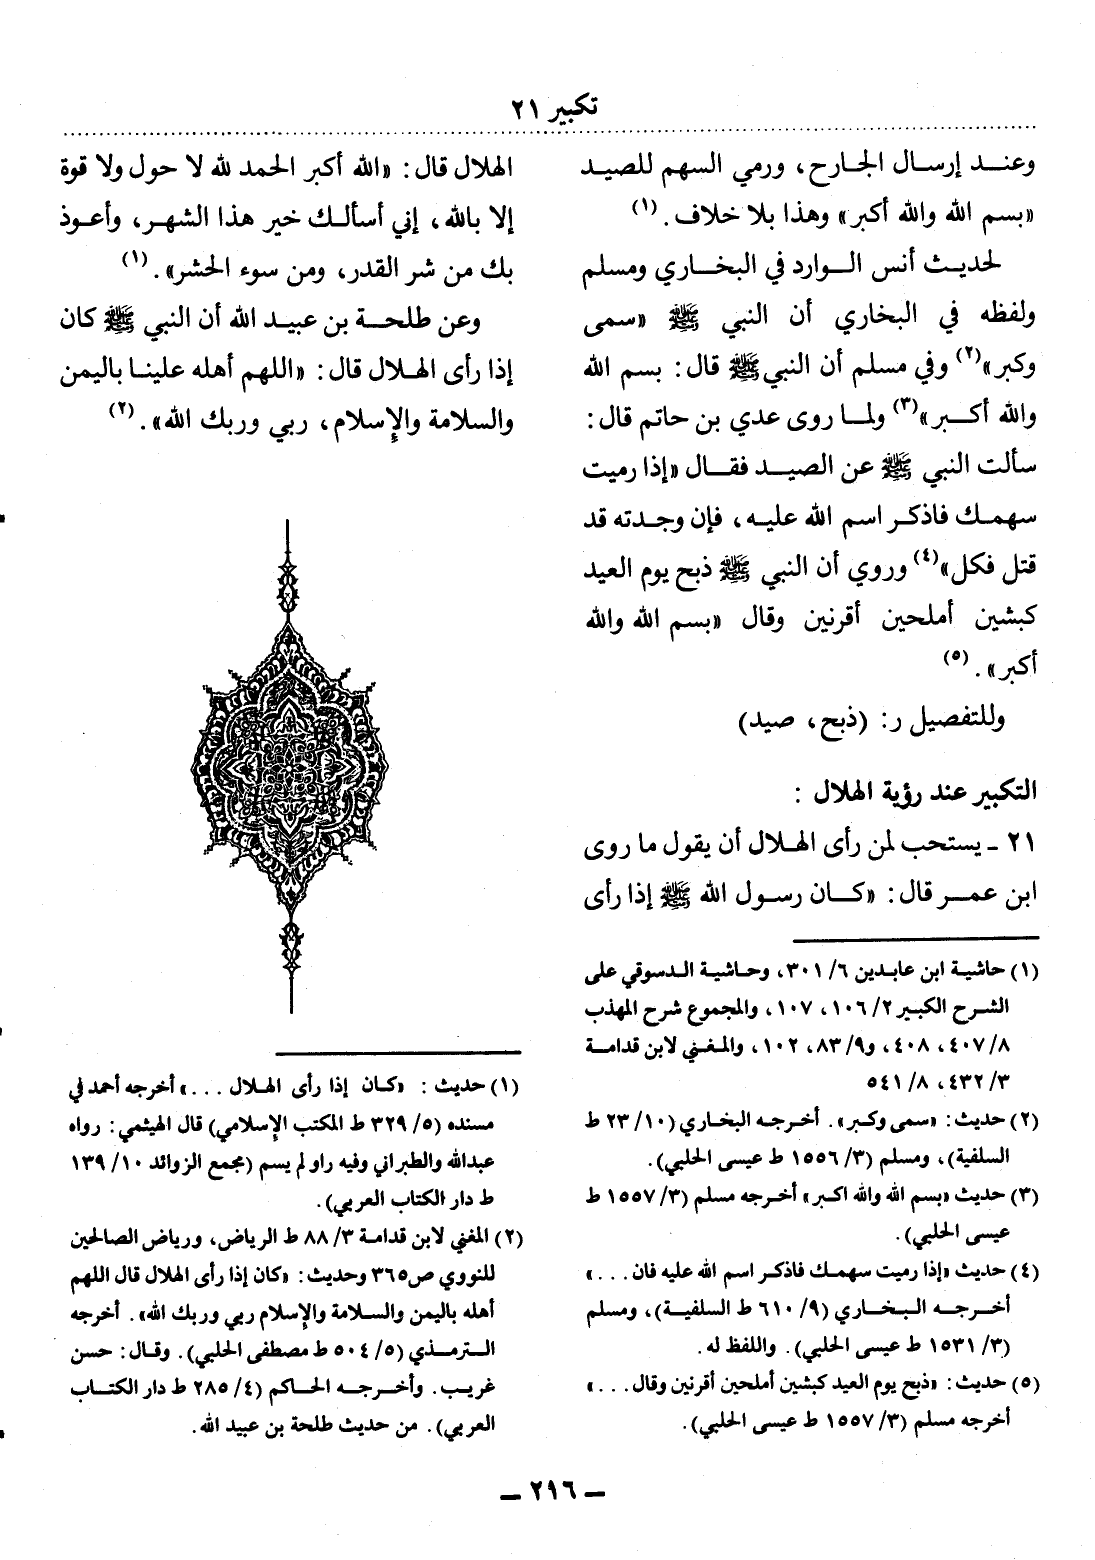 تكبير ٢١
وعنـد إرسـال الجـارح، ورمي السهم للصيـد
«بسم الله والله أكبر» وهذا بلا خلاف. (١)
لحديـث أنس الـوارد في البخـاري ومسلم
ولفظه في البخاري أن النبي ﷺ «سمى
وكبر»(٢) وفي مسلم أن النبي ﷺ قال: بسم الله
والله أكـبر»(٣) ولمـا روى عدي بن حاتم قال:
سألت النبي ﷺ عن الصيـد فقـال «إذا رميت
سهمـك فاذكـر اسم الله عليـه، فإن وجـدته قد
قتل فكل»(٤) وروي أن النبي ﷺ ذبح يوم العيد
كبشين أملحين أقرنين وقال «بسم الله والله
أكبر». (٥)
وللتفصيل ر: (ذبح، صيد)
التكبير عند رؤية الهلال :
٢١ - يستحب لمن رأى الهـلال أن يقول ما روى
ابن عمـر قال: «كـان رسـول الله ﷺ إذا رأى
(١) حاشيـة ابن عابـدين ٦/ ٣٠١، وحـاشيـة الـدسوقي على
الشـرح الكبير ٢/ ١٠٦، ١٠٧، والمجموع شرح المهذب
٨/ ٤٠٧، ٤٠٨، و٩/ ٨٣، ١٠٢، والمغـني لابن قدامـة
٣/ ٤٣٢، ٨/ ٥٤١
(٢) حديث: «سمى وكبر». أخـرجـه البخـاري (١٠/ ٢٣ ط
السلفية)، ومسلم (٣/ ١٥٥٦ ط عيسى الحلبي).
(٣) حديث «بسم الله والله اكبر» أخرجه مسلم (٣/ ١٥٥٧ ط
عيسى الحلبي).
(٤) حديث «إذا رميت سهمـك فاذكر اسم الله عليه فان . . .»
أخـرجـه البـخـاري (٩/ ٦١٠ ط السلفيـة)، ومسلم
(٣/ ١٥٣١ ط عيسى الحلبي). واللفظ له.
(٥) حديث: «ذبح يوم العيد كبشين أملحين أقرنين وقال. . .»
أخرجه مسلم (٣/ ١٥٥٧ ط عيسى الحلبي).
الهلال قال: «الله أكبر الحمد لله لا حول ولا قوة
إلا بالله، إني أسألـك خير هذا الشهـر، وأعـوذ
بك من شر القدر، ومن سوء الحشر». (١)
وعن طلحـة بن عبيـد الله أن النبي ﷺ كان
إذا رأى الهـلال قال: «اللهم أهله علينـا باليمن
والسلامة والإسلام، ربي وربك الله». (٢)
(١) حديث : «كـان إذا رأى الهـلال . . .» أخرجه أحمد في
مسنده (٥/ ٣٢٩ ط المكتب الإسلامي) قال الهيثمي: رواه
عبدالله والطبراني وفيه راو لم يسم (مجمع الزوائد ١٠/ ١٣٩
ط دار الكتاب العربي).
(٢) المغني لابن قدامـة ٣/ ٨٨ ط الرياض، ورياض الصالحين
للنووي ص٣٦٥ وحديث: «كان إذا رأى الهلال قال اللهم
أهله باليمن والسلامة والإسلام ربي وربك الله». أخرجه
الـترمـذي (٥/ ٥٠٤ ط مصطفى الحلبي). وقال: حسن
غريب. وأخـرجـه الحاكم (٤/ ٢٨٥ ط دار الكتـاب
العربي). من حديث طلحة بن عبيد الله.
- ٢١٦ -